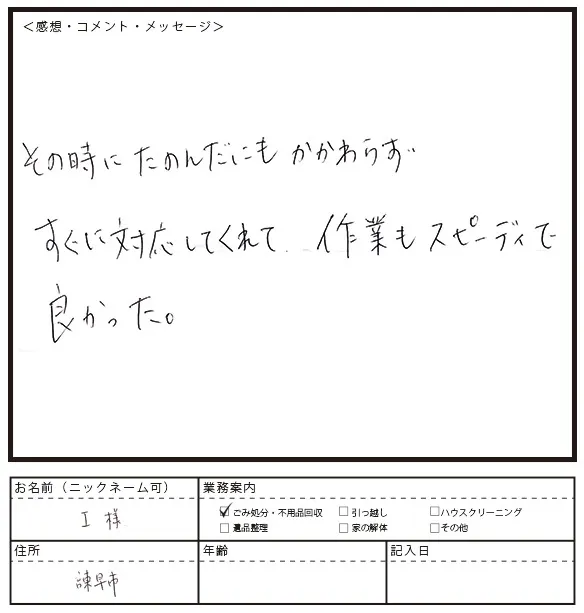 ＜感想・コメント・メッセージ＞
その時にたのんだにもかかわらず
すぐに対応してくれて、作業もスピーディで
良かった。
お名前（ニックネーム可） 業務案内
I 様
☑ごみ処分・不用品回収 □引っ越し □ハウスクリーニング
□遺品整理 □家の解体 □その他
住所 年齢 記入日
諫早市